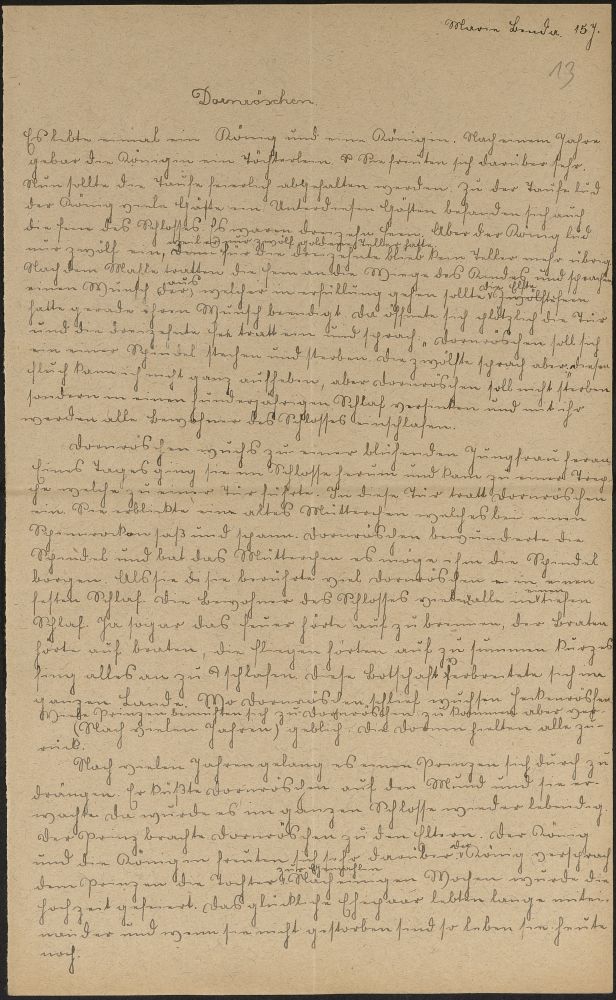 Marie Benda. 15 J.
13
Dornröschen.
Es lebte einmal ein König und eine Königin. Nach einem Jahre
gebar die Königin ein Töchterlein. Sie freuten sich darüber sehr.
Nun sollte die Taufe feierlich abgehalten werden. Zu der Taufe lud
der König viele Gäste ein. Unter diesen Gästen befanden sich auch
die Feen des Schlosses. Es waren dreizehn Feen. Aber der König lud
weil er nur zwölf goldene Teller hatte
nur zwölf ein, denn für die dreizehnte blieb kein Teller mehr übrig.
Nach dem Mahle tratten die Feen an die Wiege des Kindes und sprachen
aus die Elfte
einen Wunsch welcher in erfüllung gehen sollte.
hatte gerade ihren Wunsch beendigt da öffnete sich plötzlich die Tür
und die dreizehnte Fee tratt ein und sprach: „Dornröschen soll sich
an einer Spindel stechen und sterben. Die zwölfte sprach aber: diesen
Fluch kann ich nicht ganz aufheben, aber Dornröschen soll nicht sterben
sondern in einen hunderjährigen Schlaf versinken und mit ihr
werden alle Bewohner des Schlosses einschlafen.
Dornröschen wuchs zu einer blühenden Jungfrau heran.
Eines Tages ging sie im Schlosse herum und kam zu einer Trep-
pe welche zu einer Tür führte. In diese Tür tratt Dornröschen
ein. Sie erblickte eine altes Mütterchen welches bei einem
Spinnrocken saß und spann. Dornröschen bewunderte die
Spindel und bat das Mütterchen es möge ihm die Spindel
borgen. Als sie sie berührte viel Dornröschen in einen
einen
festen Schlaf. Die Bewohner des Schlosses vielen alle in tiefen
Schlaf. Ja sogar das Feuer hörte auf zu brennen, der Braten
hörte auf braten, die Fliegen hörten auf zu summen kurz es
fing alles an zu schlafen. Diese Botschaft verbreitete sich im
ganzen Lande. Wo Dornröschen schlief wuchsen Heckenröschen
Viele Prinzen bemühten sich zu Dornröschen zu kommen aber ver-
(Nach vielen Jahren) geblich. Die Dornen hielten alle zu-
rück.
Nach vielen Jahren gelang es einen Prinzen sich durch zu
drängen. Er küßte Dornröschen auf den Mund und sie er-
wachte. Da wurde es im ganzen Schlosse wieder lebendig.
Der Prinz brachte Dornröschen zu den Eltern. Der König
und die Königin freuten sich sehr darüber. Der König versprach
zur Gemahlin
dem Prinzen die Tochter. Nach einigen Wochen wurde die
Hochzeit gefeiert. Das glückliche Ehepaar lebten lange mitei-
nander und wenn sie nicht gestorben sind so leben sie heute
noch.